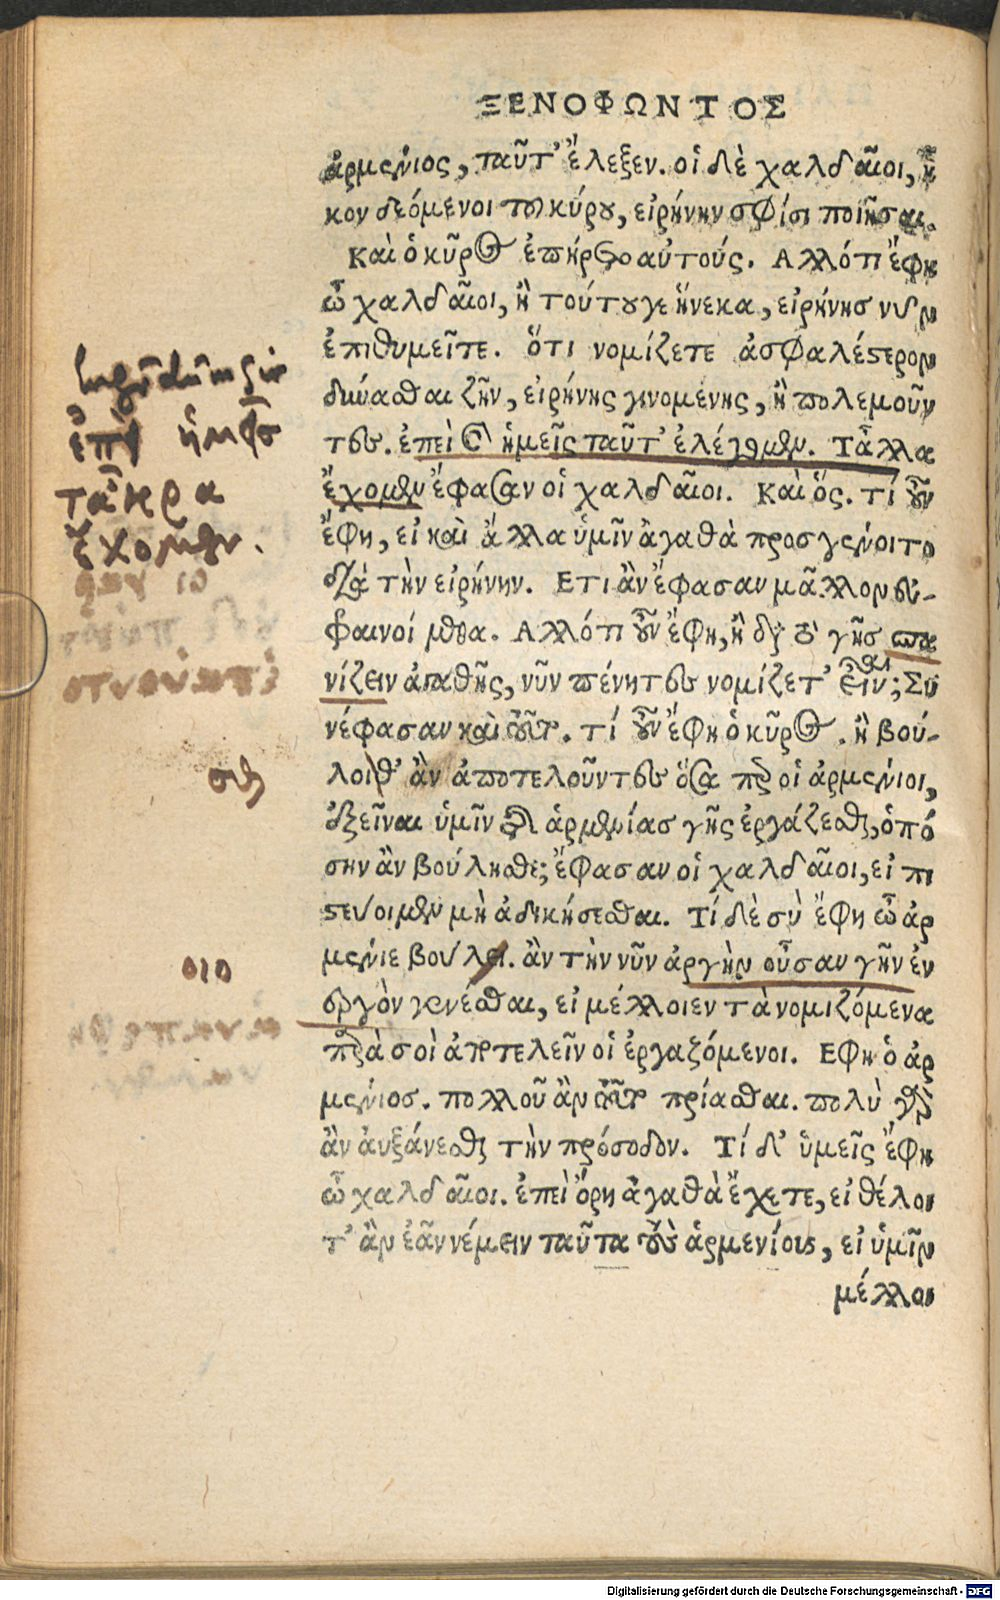 ΞΕΝΟΦΩΝΤΟΣ
ἀρμένιος, ταῦτ' ἔλεξεν. οἱ δὲ χαλδαῖοι, ἧ
κον δεόμενοι τοῦ κύρου, εἰρήνην σφίσι ποιῆσαι.
Καὶ ὁ κῦρος ἐπήρετο αὐτούς. Αλλότι ἔφη
ὦ χαλδαῖοι, ἢ τούτου γε ἕνεκα, εἰρήνησ νῦν
ἐπιθυμεῖτε. ὅτι νομίζετε ἀσφαλέστερον
δύνασθαι ζῆν, εἰρήνης γινομένης, ἢ πολεμοῦν
τες. ἐπεὶ καὶ ἡμεῖς ταῦτ' ἐλέγομεν. Τἆλλα
ἔχομεν ἔφασαν οἱ χαλδαῖοι. Καὶ ὅς. τί οὖν
ἔφη, εἰ καὶ ἄλλα ὑμῖν ἀγαθὰ προσγένοιτο
διὰ τὴν εἰρήνην. Ετι ἂν ἔφασαν μᾶλλον εὐ-
φραινοίμεθα. Αλλότι οὖν ἔφη, ἢ διὰ τὸ γῆσ σπα
νίζειν ἀγαθῆς, νῦν πένητες νομίζετ' εἶναι; Συ
νέφασαν καὶ τοῦτο. τί οὖν ἔφη ὁ κῦρος. ἢ βού-
λοισθ' ἂν ἀποτελοῦντες ὅσα περ οἱ ἀρμένιοι,
ἐξεῖναι ὑμῖν τῆς ἀρμενίασ γῆς ἐργάζεσθαι, ὁπό
σην ἂν βούλησθε; ἔφασαν οἱ χαλδαῖοι, εἰ πι
στεύοιμεν μὴ ἀδικήσεσθαι. Τί δὲ σὺ ἔφη ὦ ἀρ
μένιε βούλει. ἂν τὴν νῦν ἀργὴν οὖσαν γῆν ἐν
εργὸν γενέσθαι, εἰ μέλλοιεν τὰ νομιζόμενα
παρὰ σοὶ ἀποτελεῖν οἱ ἐργαζόμενοι. Εφη ὁ ἀρ
μένιοσ. πολλοῦ ἂν τοῦτο πρίασθαι. πολὺ γὰρ
ἂν αὐξάνεσθαι τὴν πρόσοδον. Τί δ' ὑμεῖς ἔφη
ὦ χαλδαῖοι. ἐπεὶ ὄρη ἀγαθὰ ἔχετε, εἰ θέλοι
τ' ἂν ἐᾶν νέμειν ταῦτα τοὺς ἀρμενίους, εἰ ὑμῖν
μέλλοι
ἔχομεν.
σιθ
οιο
Digitalisierung gefördert durch die Deutsche Forschungsgemeinschaft - DFG